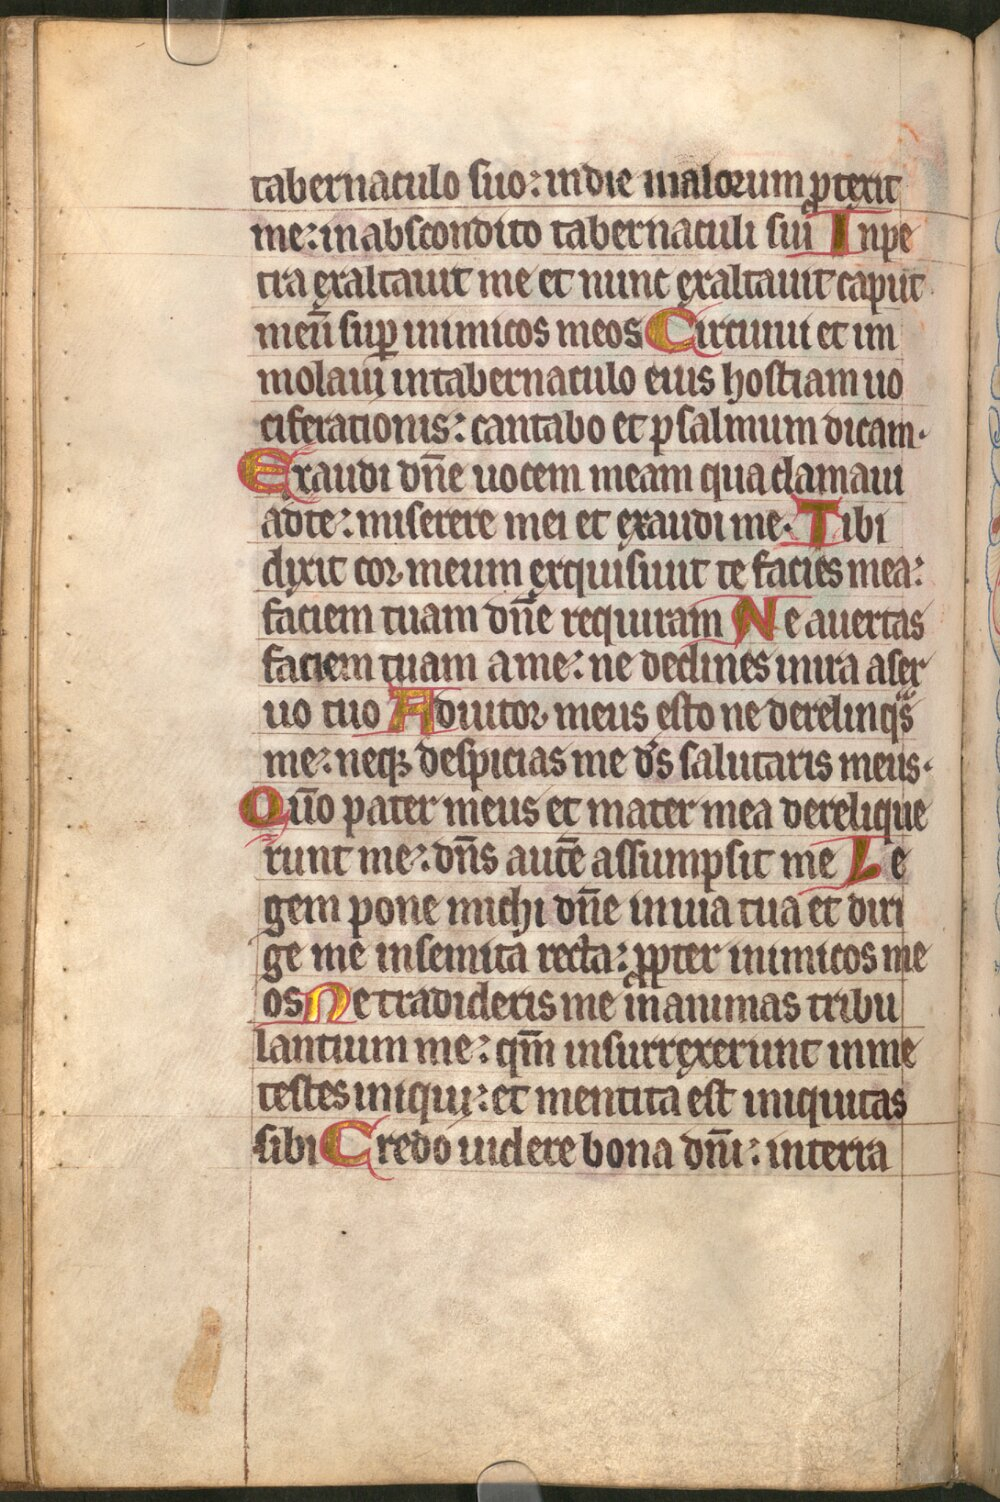 tabernaculo suo: in die malorum ꝓtexit
me: in abscondito tabernaculi sui In pe
tra exaltauit me et nunc exaltauit caput
meū suꝑ inimicos meos Circuiui et im
molaui in tabernaculo eius hostiam uo
ciferationis: cantabo et psalmum dicam.
Exaudi dn̄e uocem meam qua clamaui
ad te: miserere mei et exaudi me. Tibi
dixit cor meum exquisiuit te facies mea:
faciem tuam dn̄e requiram Ne auertas
faciem tuam a me: ne declines in ira a ser
uo tuo Adiutor meus esto ne derelinqͥs
me: neqꝫ despicias me ds̄ salutaris meus.
Qūo pater meus et mater mea derelique
runt me: dn̄s autē assumpsit me Le
gem pone michi dn̄e in uia tua et diri
ge me in semita recta: ꝓpter inimicos me
os Ne tradideris me in animas tribu
lantium me: qm̄ insurrexerunt in me
testes iniqui: et mentita est iniquitas
sibi Credo uidere bona dn̄i: in terra